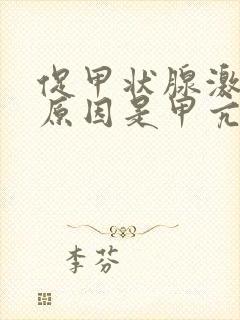 促甲状腺激
原因是甲亢
李芬